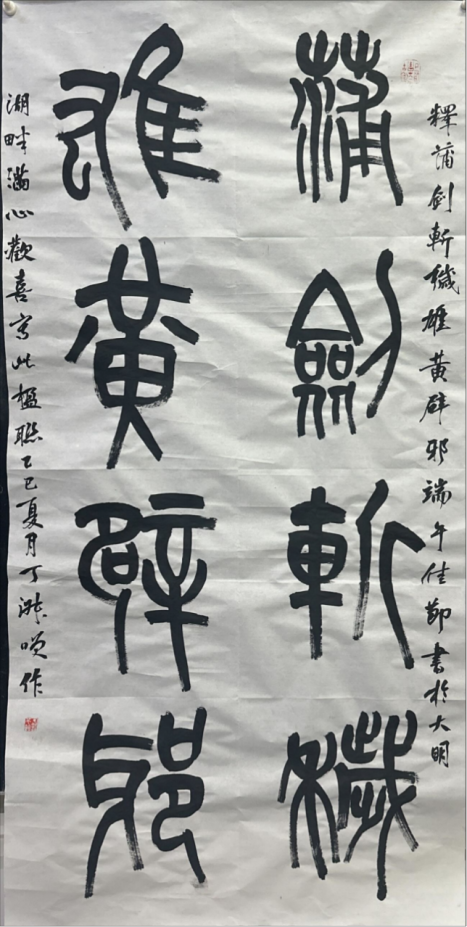 釋蒲剑斬穢雄黃辟邪端午佳節書於大明
蒲劍斬穢
雄黃辟邪
湖畔滿心歡喜寫此楹聯乙巳夏月丁作